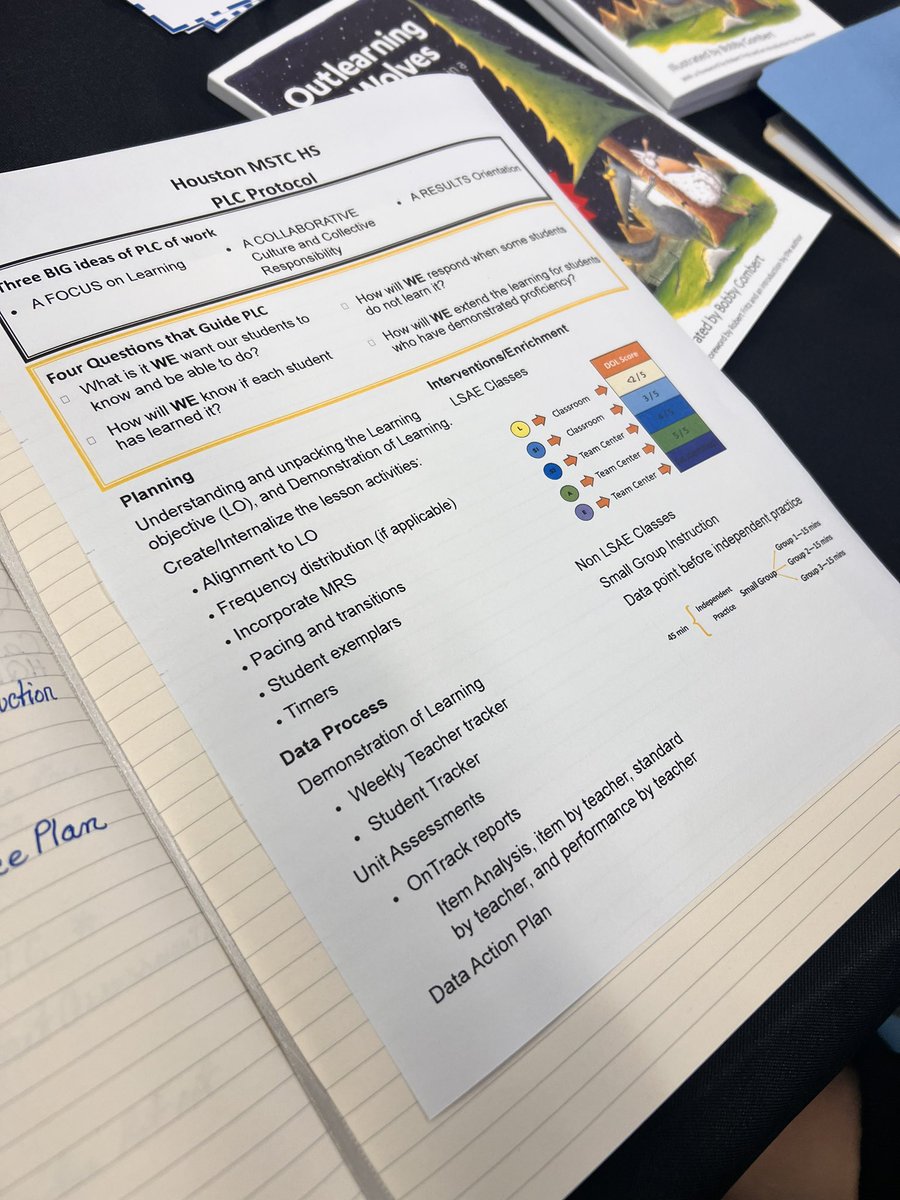 Outlearning
Wolves
Illustrated by Bobby Gombert
ated by Bobby Gombert
Houston MSTC HS
PLC Protocol
Three BIG ideas of PLC of work
• A FOCUS on Learning
• A COLLABORATIVE
Culture and Collective
Responsibility
• A RESULTS Orientation
Four Questions that Guide PLC
What is it WE want our students to
know and be able to do?
How will WE know if each student
has learned it?
How will WE respond when some students
do not learn it?
How will WE extend the learning for students
who have demonstrated proficiency?
Planning
Understanding and unpacking the Learning
objective (LO), and Demonstration of Learning.
Create/Internalize the lesson activities:
• Alignment to LO
• Frequency distribution (if applicable)
• Incorporate MRS
• Pacing and transitions
• Student exemplars
• Timers
Data Process
Demonstration of Learning
• Weekly Teacher tracker
• Student Tracker
Unit Assessments
• OnTrack reports
Item Analysis, item by teacher, standard
by teacher, and performance by teacher
Data Action Plan
Interventions/Enrichment
LSAE Classes
DOL Score
L Classroom <2/5
S1 Classroom 3/5
S2 Team Center 4/5
A Team Center 5/5
E Team Center
Non LSAE Classes
Small Group Instruction
Data point before independent practice
45 min
Independent
Practice
Small Group
Group 1—15 mins
Group 2—15 mins
Group 3—15 mins
uction
ee Plan